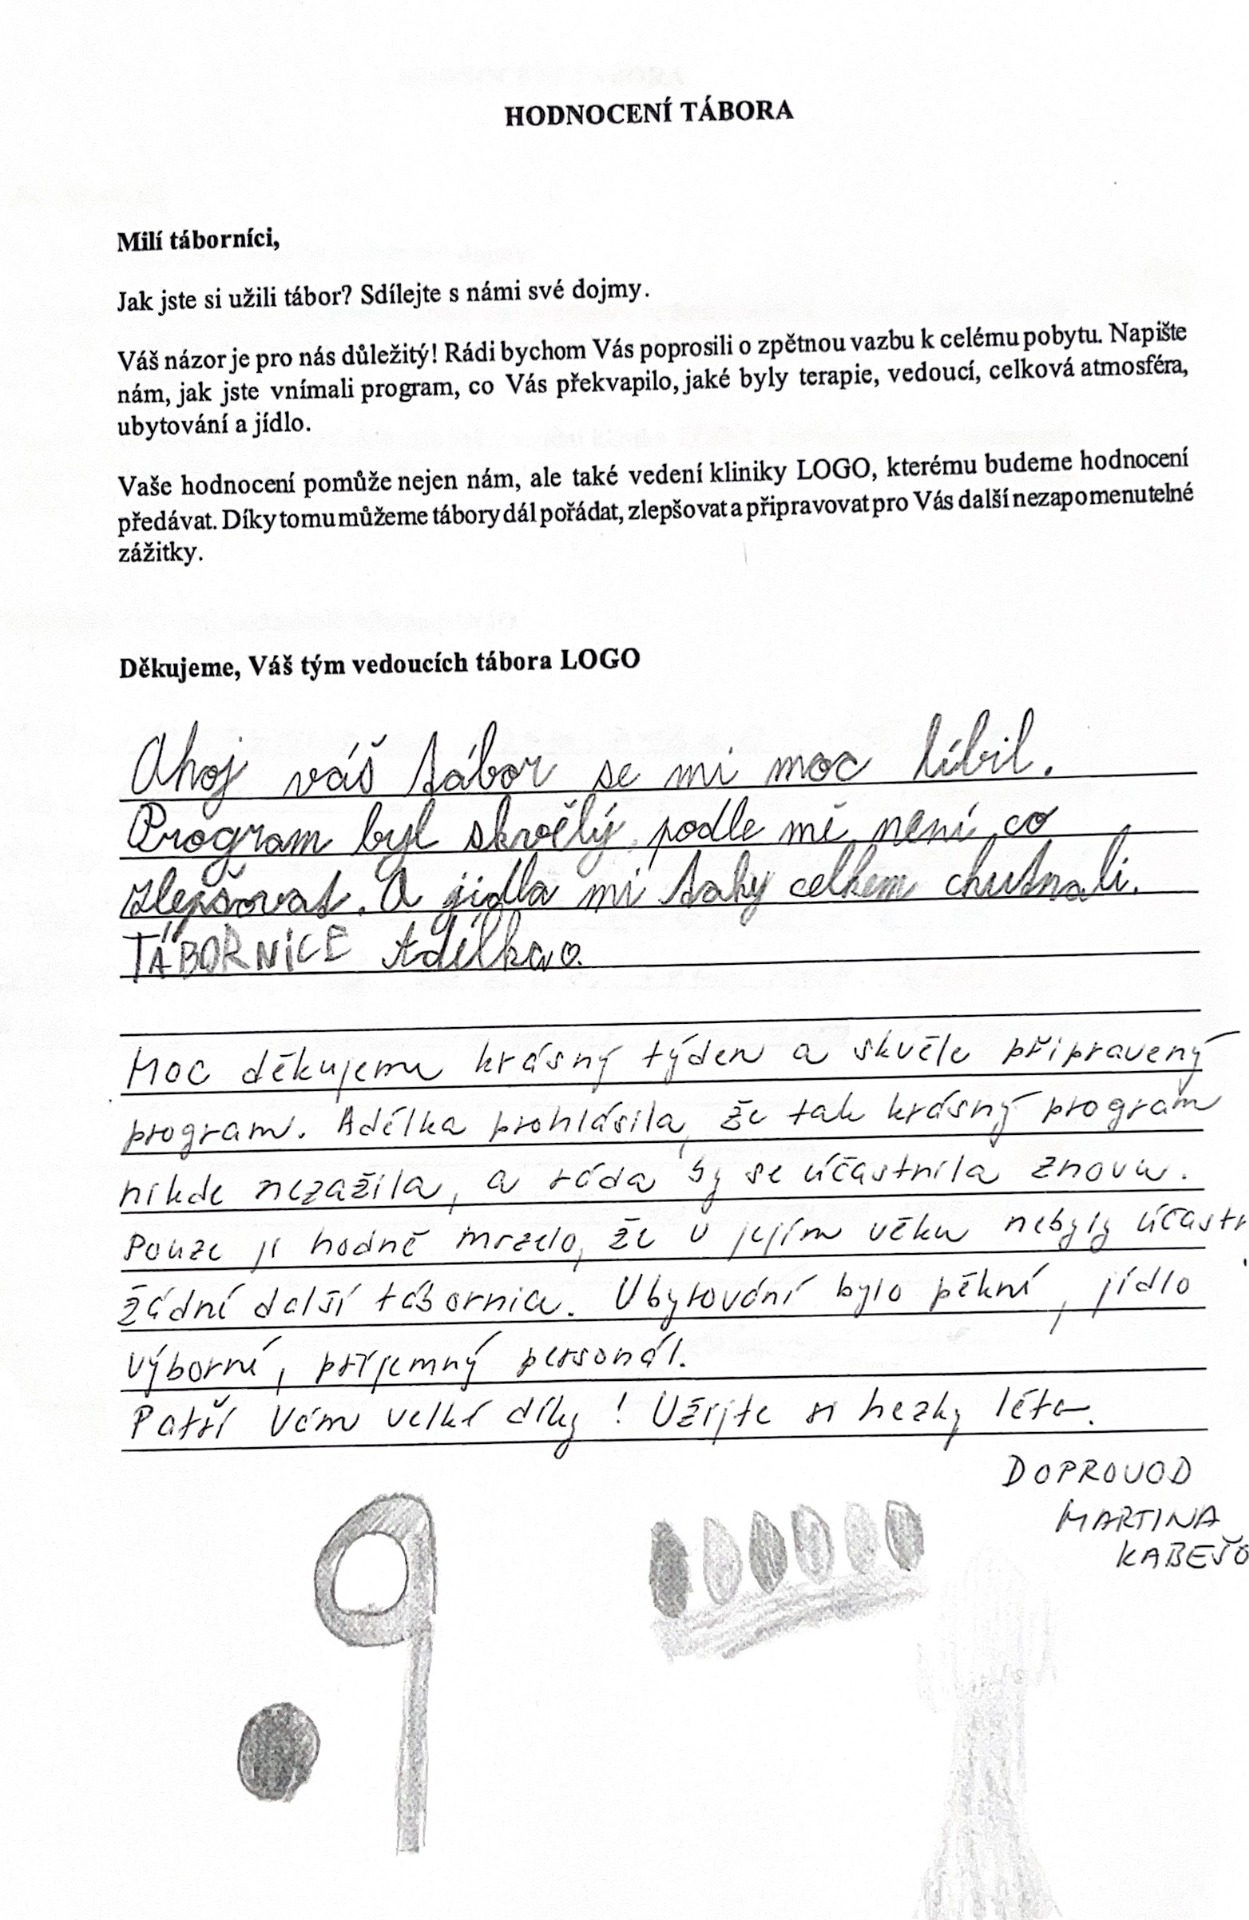 HODNOCENÍ TÁBORA
Milí táborníci,
Jak jste si užili tábor? Sdílejte s námi své dojmy.
Váš názor je pro nás důležitý! Rádi bychom Vás poprosili o zpětnou vazbu k celému pobytu. Napište
nám, jak jste vnímali program, co Vás překvapilo, jaké byly terapie, vedoucí, celková atmosféra,
ubytování a jídlo.
Vaše hodnocení pomůže nejen nám, ale také vedení kliniky LOGO, kterému budeme hodnocení
předávat. Díky tomu můžeme tábory dál pořádat, zlepšovat a připravovat pro Vás další nezapomenutelné
zážitky.
Děkujeme, Váš tým vedoucích tábora LOGO
Ahoj váš tábor se mi moc líbil.
Program byl skvělý, podle mě není co
zlepšovat. A jídla mi taky celkem chutnali.
TÁBORNICE Adélka
Moc děkujeme krásný týden a skvěle připravený
program. Adélka prohlásila, že tak krásný program
nikde nezažila, a ráda by se účastnila znovu.
Pouze ji hodně mrzelo, že v jejím věku nebyly účastn
žádní další táborníci. Ubytování bylo pěkné, jídlo
výborné, příjemný personál.
Patří Vám velké díky! Užijte si hezky léto.
DOPROVOD
MARTINA
KABEŠO